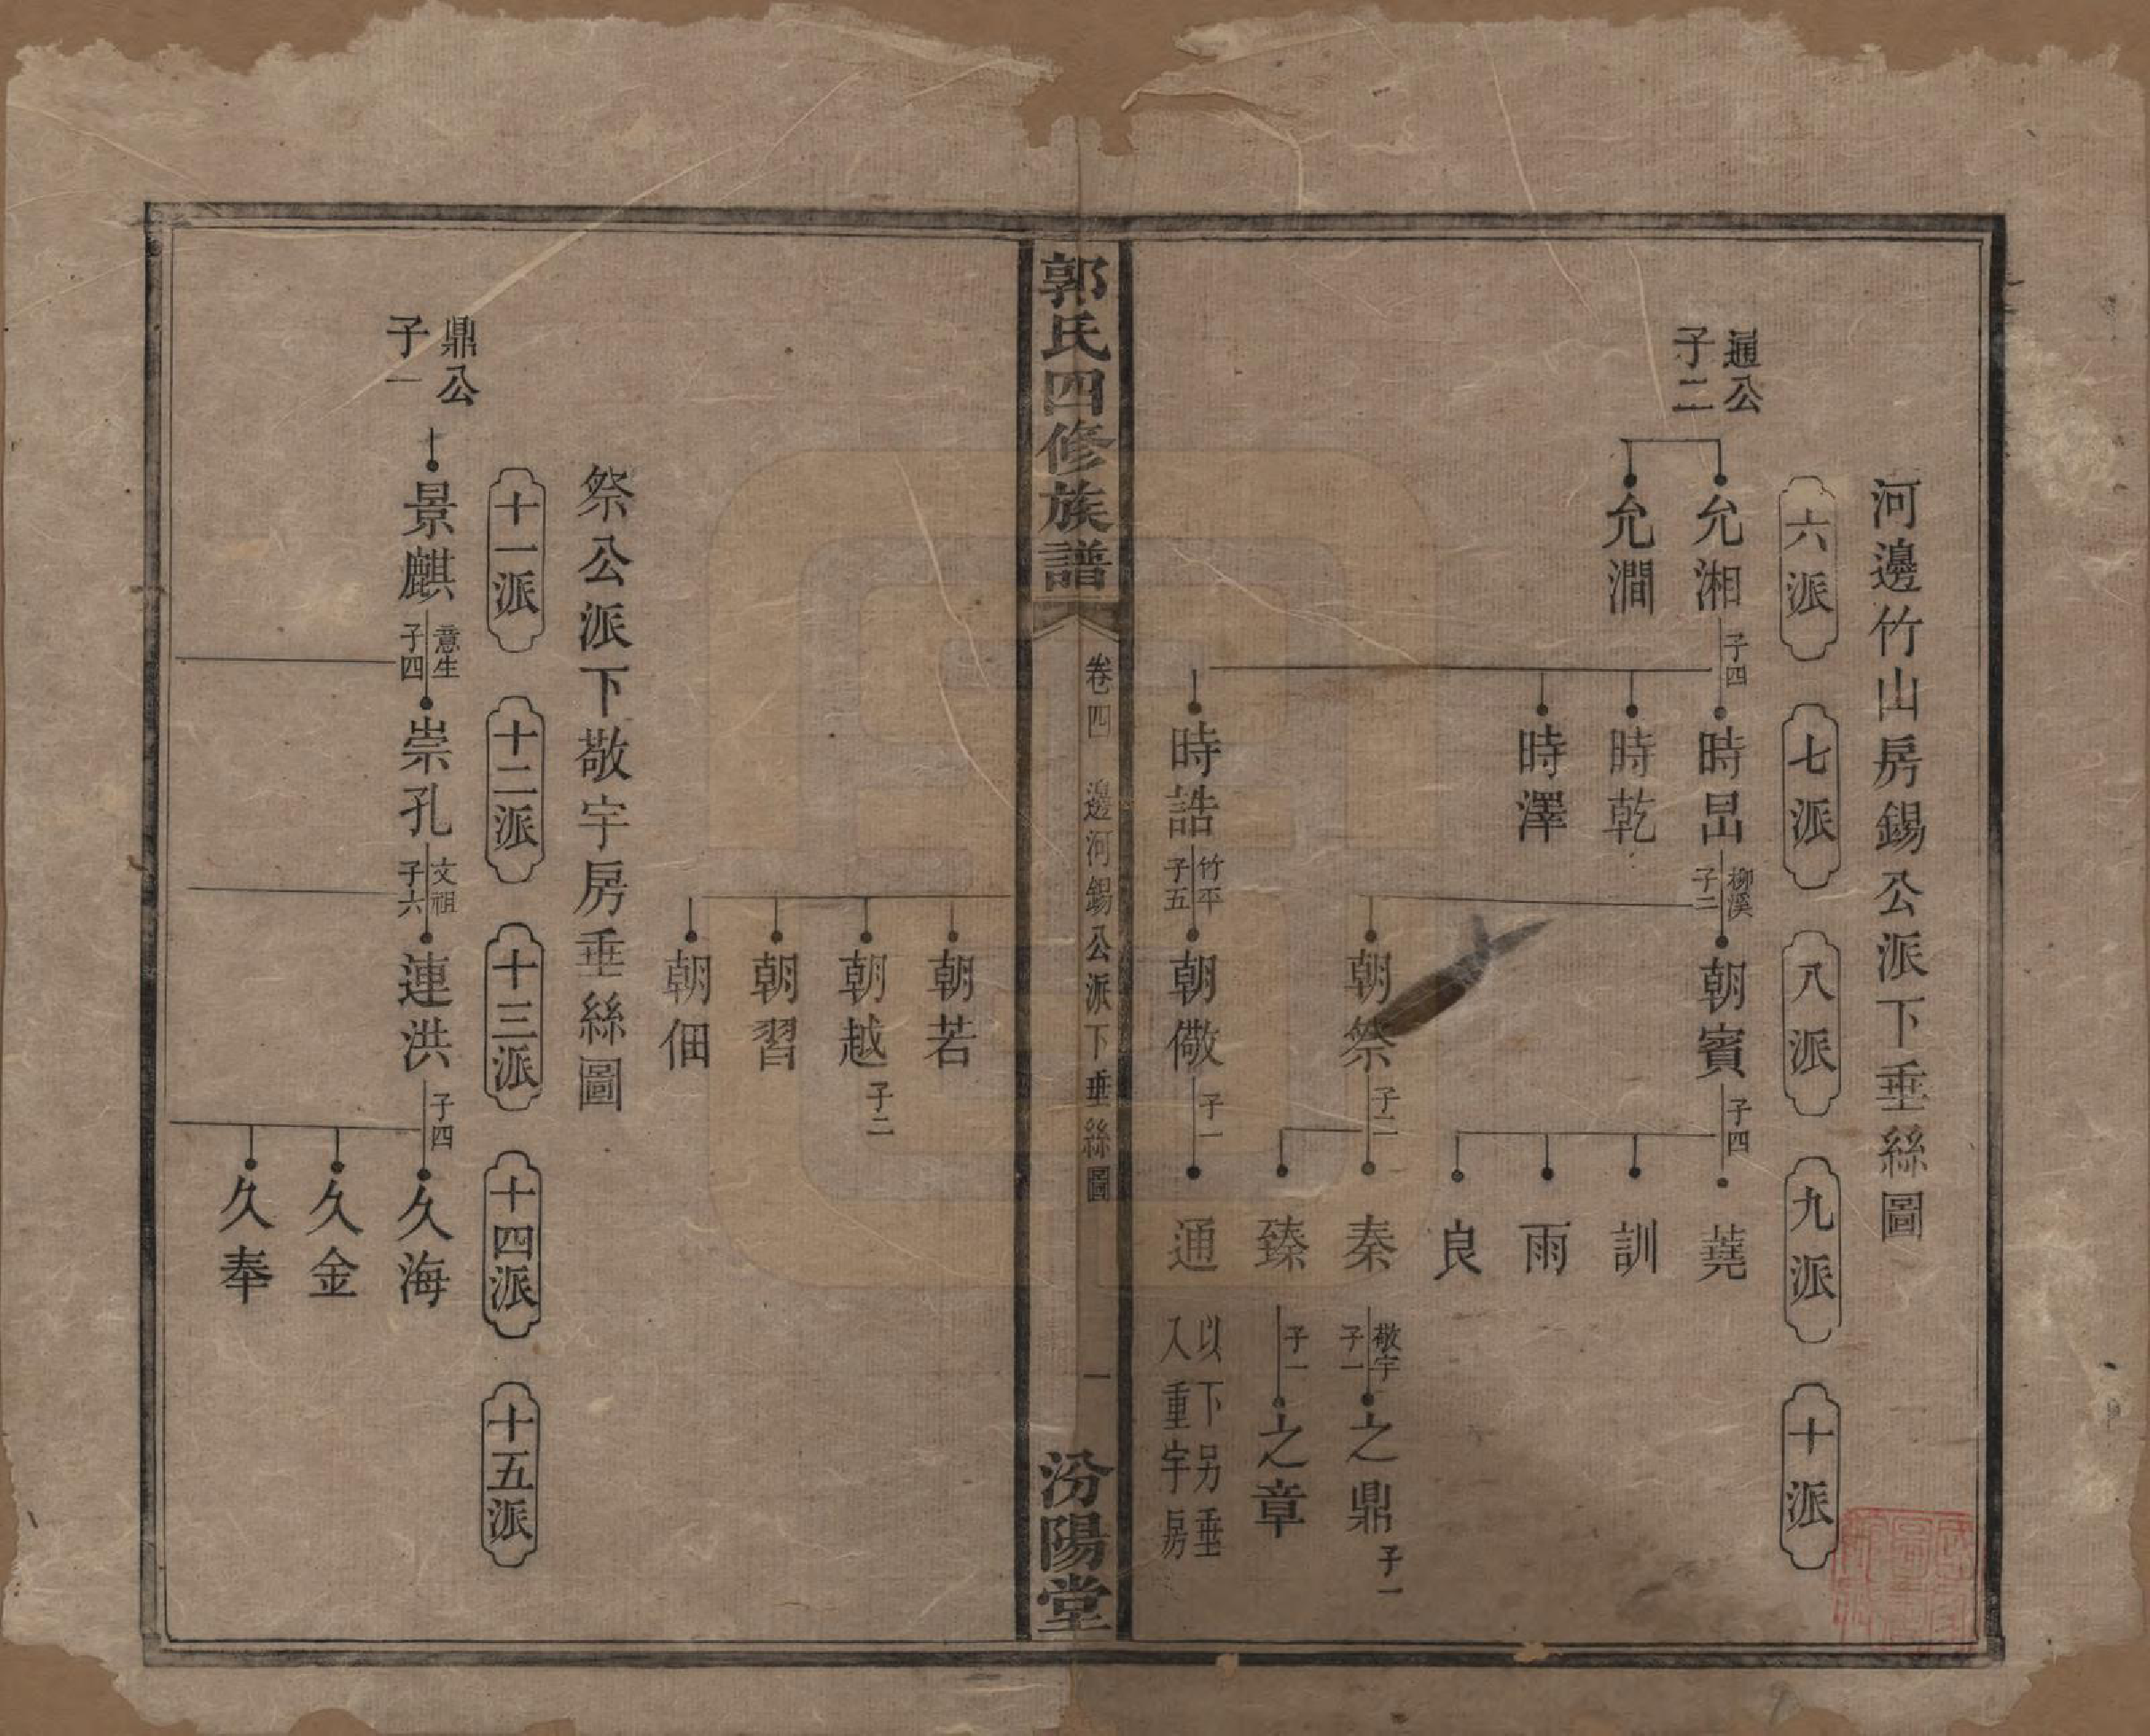 河邊竹山房錫公派下垂絲圖
六派
七派
八派
九派
十派
通公
子二
允湘
子四
時昌
柳溪
子二
朝賓
子四
蕘
允澗
時乾
訓
時澤
雨
良
朝祭
子二
秦
敬宇
子一
之鼎
子一
臻
子一
之章
時誥
竹平
子五
朝儆
子一
通
以下另垂
入重宇房
郭氏四修族譜
卷四
邊河錫公派下垂絲圖
一
汾陽堂
朝若
朝越
子二
朝習
朝佃
祭公派下敬宇房垂絲圖
十一派
十二派
十三派
十四派
十五派
鼎公
子一
景麒
意生
子四
崇孔
文祖
子六
連洪
子四
久海
久金
久奉